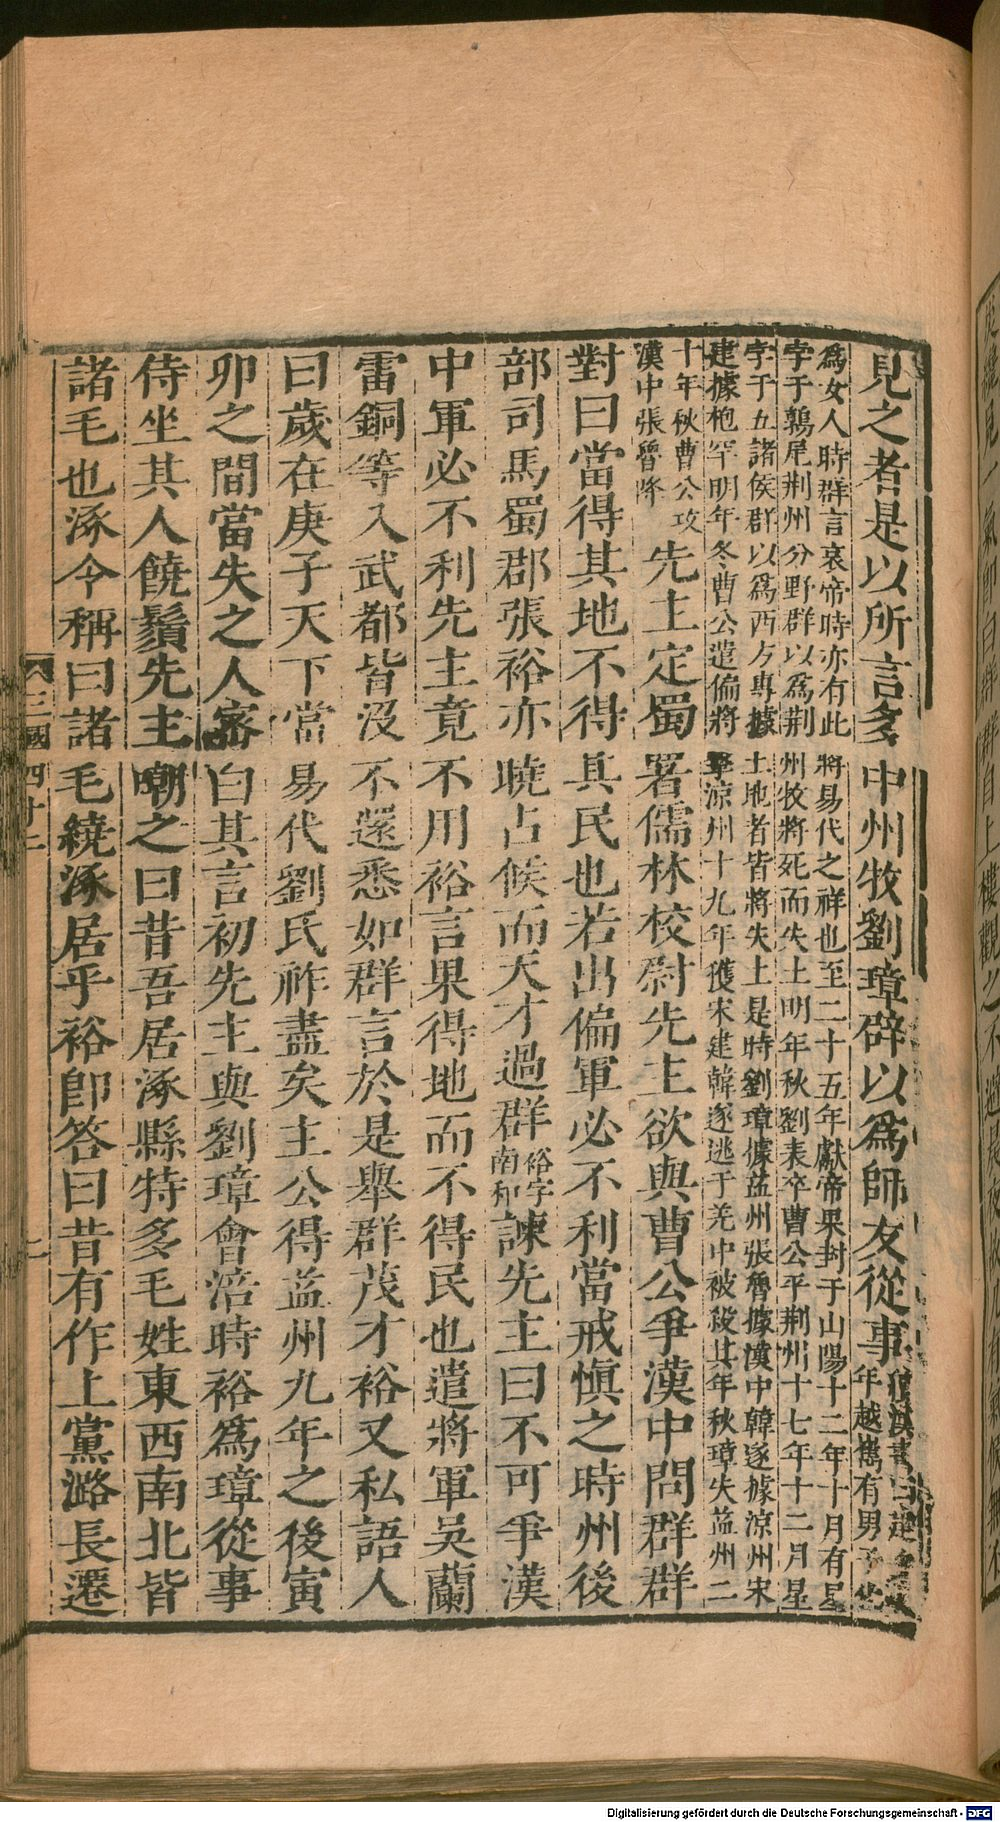 見之者是以所言多中州牧劉璋辟以爲師友從事續漢書曰建
年越嶲有男子化
爲女人時群言哀帝時亦有此將易代之祥也至二十五年獻帝果封于山陽十二年十月有星
孛于鶉尾荆州分野群以爲荆州牧將死而失土明年秋劉表卒曹公平荆州十七年十二月星
孛于五諸侯群以爲西方專據土地者皆將失土是時劉璋據益州張魯據漢中韓遂據涼州宋
建據枹罕明年冬曹公遣偏將擊涼州十九年獲宋建韓遂逃于羌中被殺其年秋璋失益州二
十年秋曹公攻
漢中張魯降
先主定蜀署儒林校尉先主欲與曹公爭漢中問群群
對曰當得其地不得其民也若出偏軍必不利當戒慎之時州後
部司馬蜀郡張裕亦曉占候而天才過群裕字南和諫先主曰不可爭漢
中軍必不利先主竟不用裕言果得地而不得民也遣將軍吳蘭
雷銅等入武都皆沒不還悉如群言於是舉群茂才裕又私語人
曰歲在庚子天下當易代劉氏祚盡矣主公得益州九年之後寅
卯之間當失之人密白其言初先主與劉璋會涪時裕爲璋從事
侍坐其人饒鬚先主嘲之曰昔吾居涿縣特多毛姓東西南北皆
諸毛也涿令稱曰諸毛繞涿居乎裕即答曰昔有作上黨潞長遷
三國 四十二
Digitalisierung gefördert durch die Deutsche Forschungsgemeinschaft - DFG